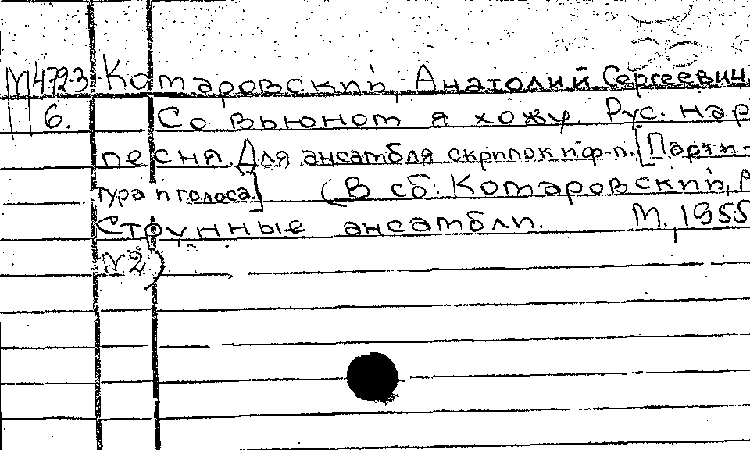 М472-3 Комаровский, Анатолий Сергеевич.
6. Со вьюном я хожу. Рус. нар
песня. Для ансамбля скрипок и ф-п. [Парти-
тура и голоса] (В сб: Комаровский, А
Струнные ансамбли. М., 1955
№2)